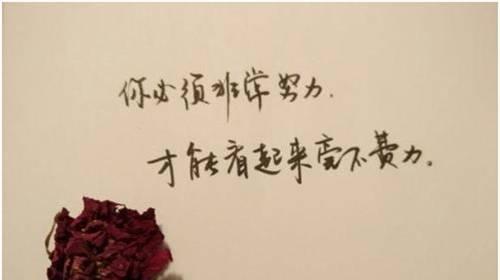 你必须非常努力.
才能看起来毫不费力。